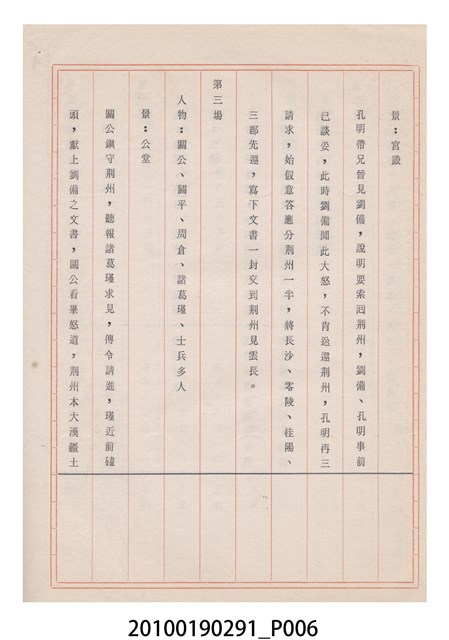 景：宮殿
孔明帶兄晉見劉備，說明要索囘荆州，劉備、孔明事前
已談妥，此時劉備聞此大怒，不肯送還荆州，孔明再三
請求，始假意答應分荆州一半，將長沙、零陵、桂陽、
三郡先還，寫下文書一封交到荆州見雲長。
第三場
人物：關公、關平、周倉、諸葛瑾、士兵多人
景：公堂
關公鎮守荆州，聽報諸葛瑾求見，傳令請進，瑾近前磕
頭，獻上劉備之文書，關公看畢怒道，荆州本大漢疆土
20100190291_P006